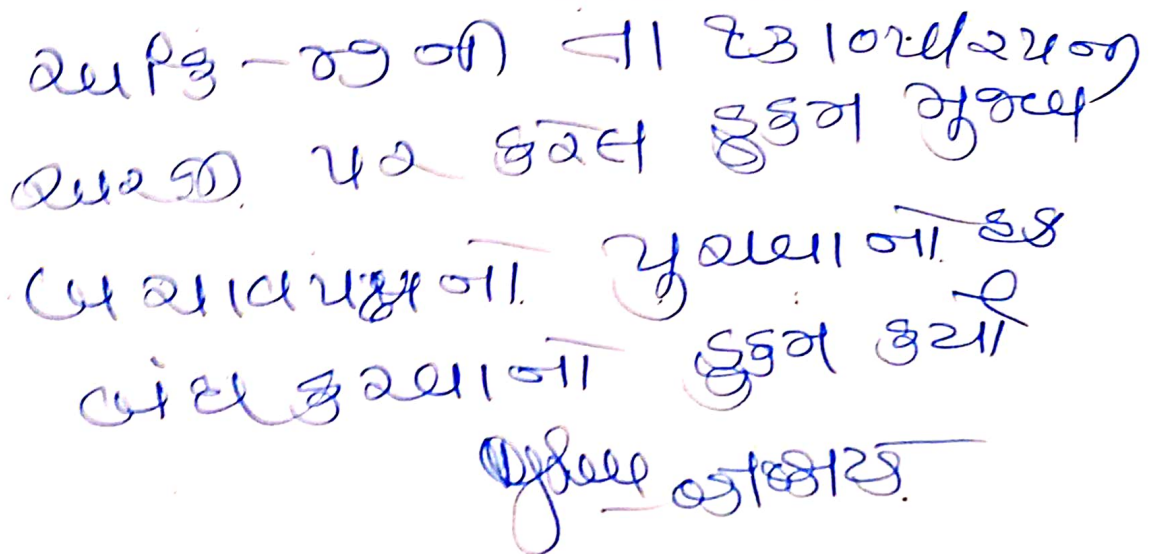 આર્કિ-જીની તા ૨૩।૦૫।૨૫ની
અરજી પર કરેલ હુકમ મુજબ
બચાવપક્ષનો પુરાવાનો હક
બંધ કરવાનો હુકમ કર્યો